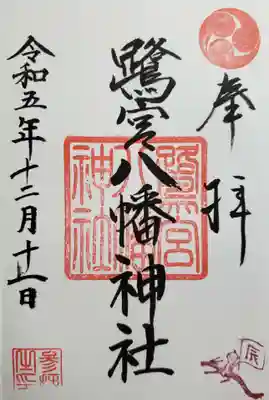 奉拝
鷺宮八幡神社
鷺宮八幡神社
令和五年十二月十一日
参拝之印
辰